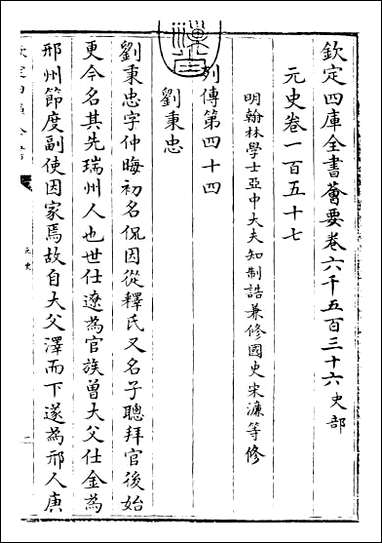 欽定四庫全書薈要卷六千五百三十六史部
元史卷一百五十七
明翰林學士亞中大夫知制誥兼修國史宋濂等修
列傳第四十四
劉秉忠
劉秉忠字仲晦初名侃因從釋氏又名子聰拜官後始
更今名其先瑞州人也世仕遼為官族曾大父仕金為
邢州節度副使因家焉故自大父澤而下遂為邢人庚
元史